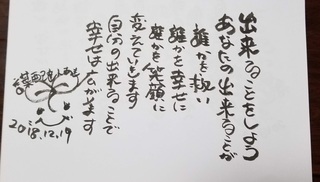 出来ることをしよう
あなたの出来ることが
誰かを救い
誰かを幸せに
誰かを笑顔に
変えていきます
自分の出来ることで
幸せは広がります
2018.12.19